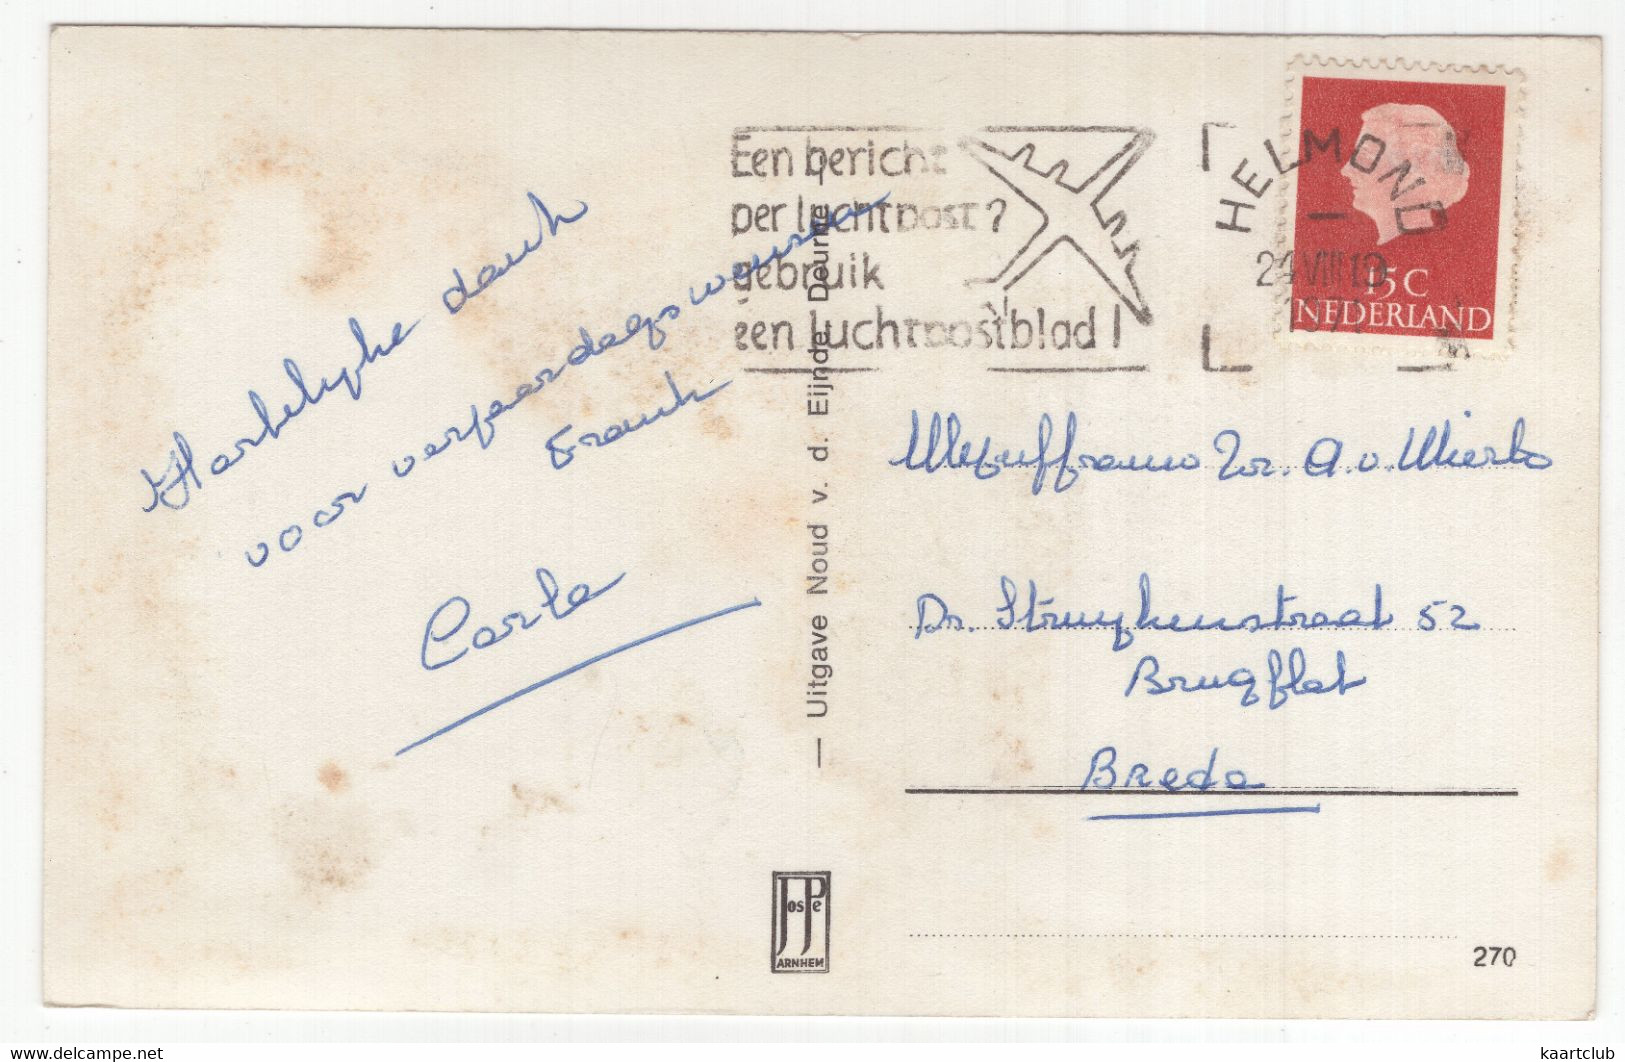 Hartelyke dank
voor verjaardagswensen
Frank
Carla
— Uitgave Noud v. d. Eijnde Deurne —
Jos Pé
ARNHEM
Een bericht
per luchtpost?
gebruik
een luchtpostblad!
HELMOND
24 VIII 19
1971
15 C
NEDERLAND
Mejuffrouw Zr. A. v. Mierlo
Dr. Struykenstraat 52
Brugflat
Breda
270
www.delcampe.net
kaartclub